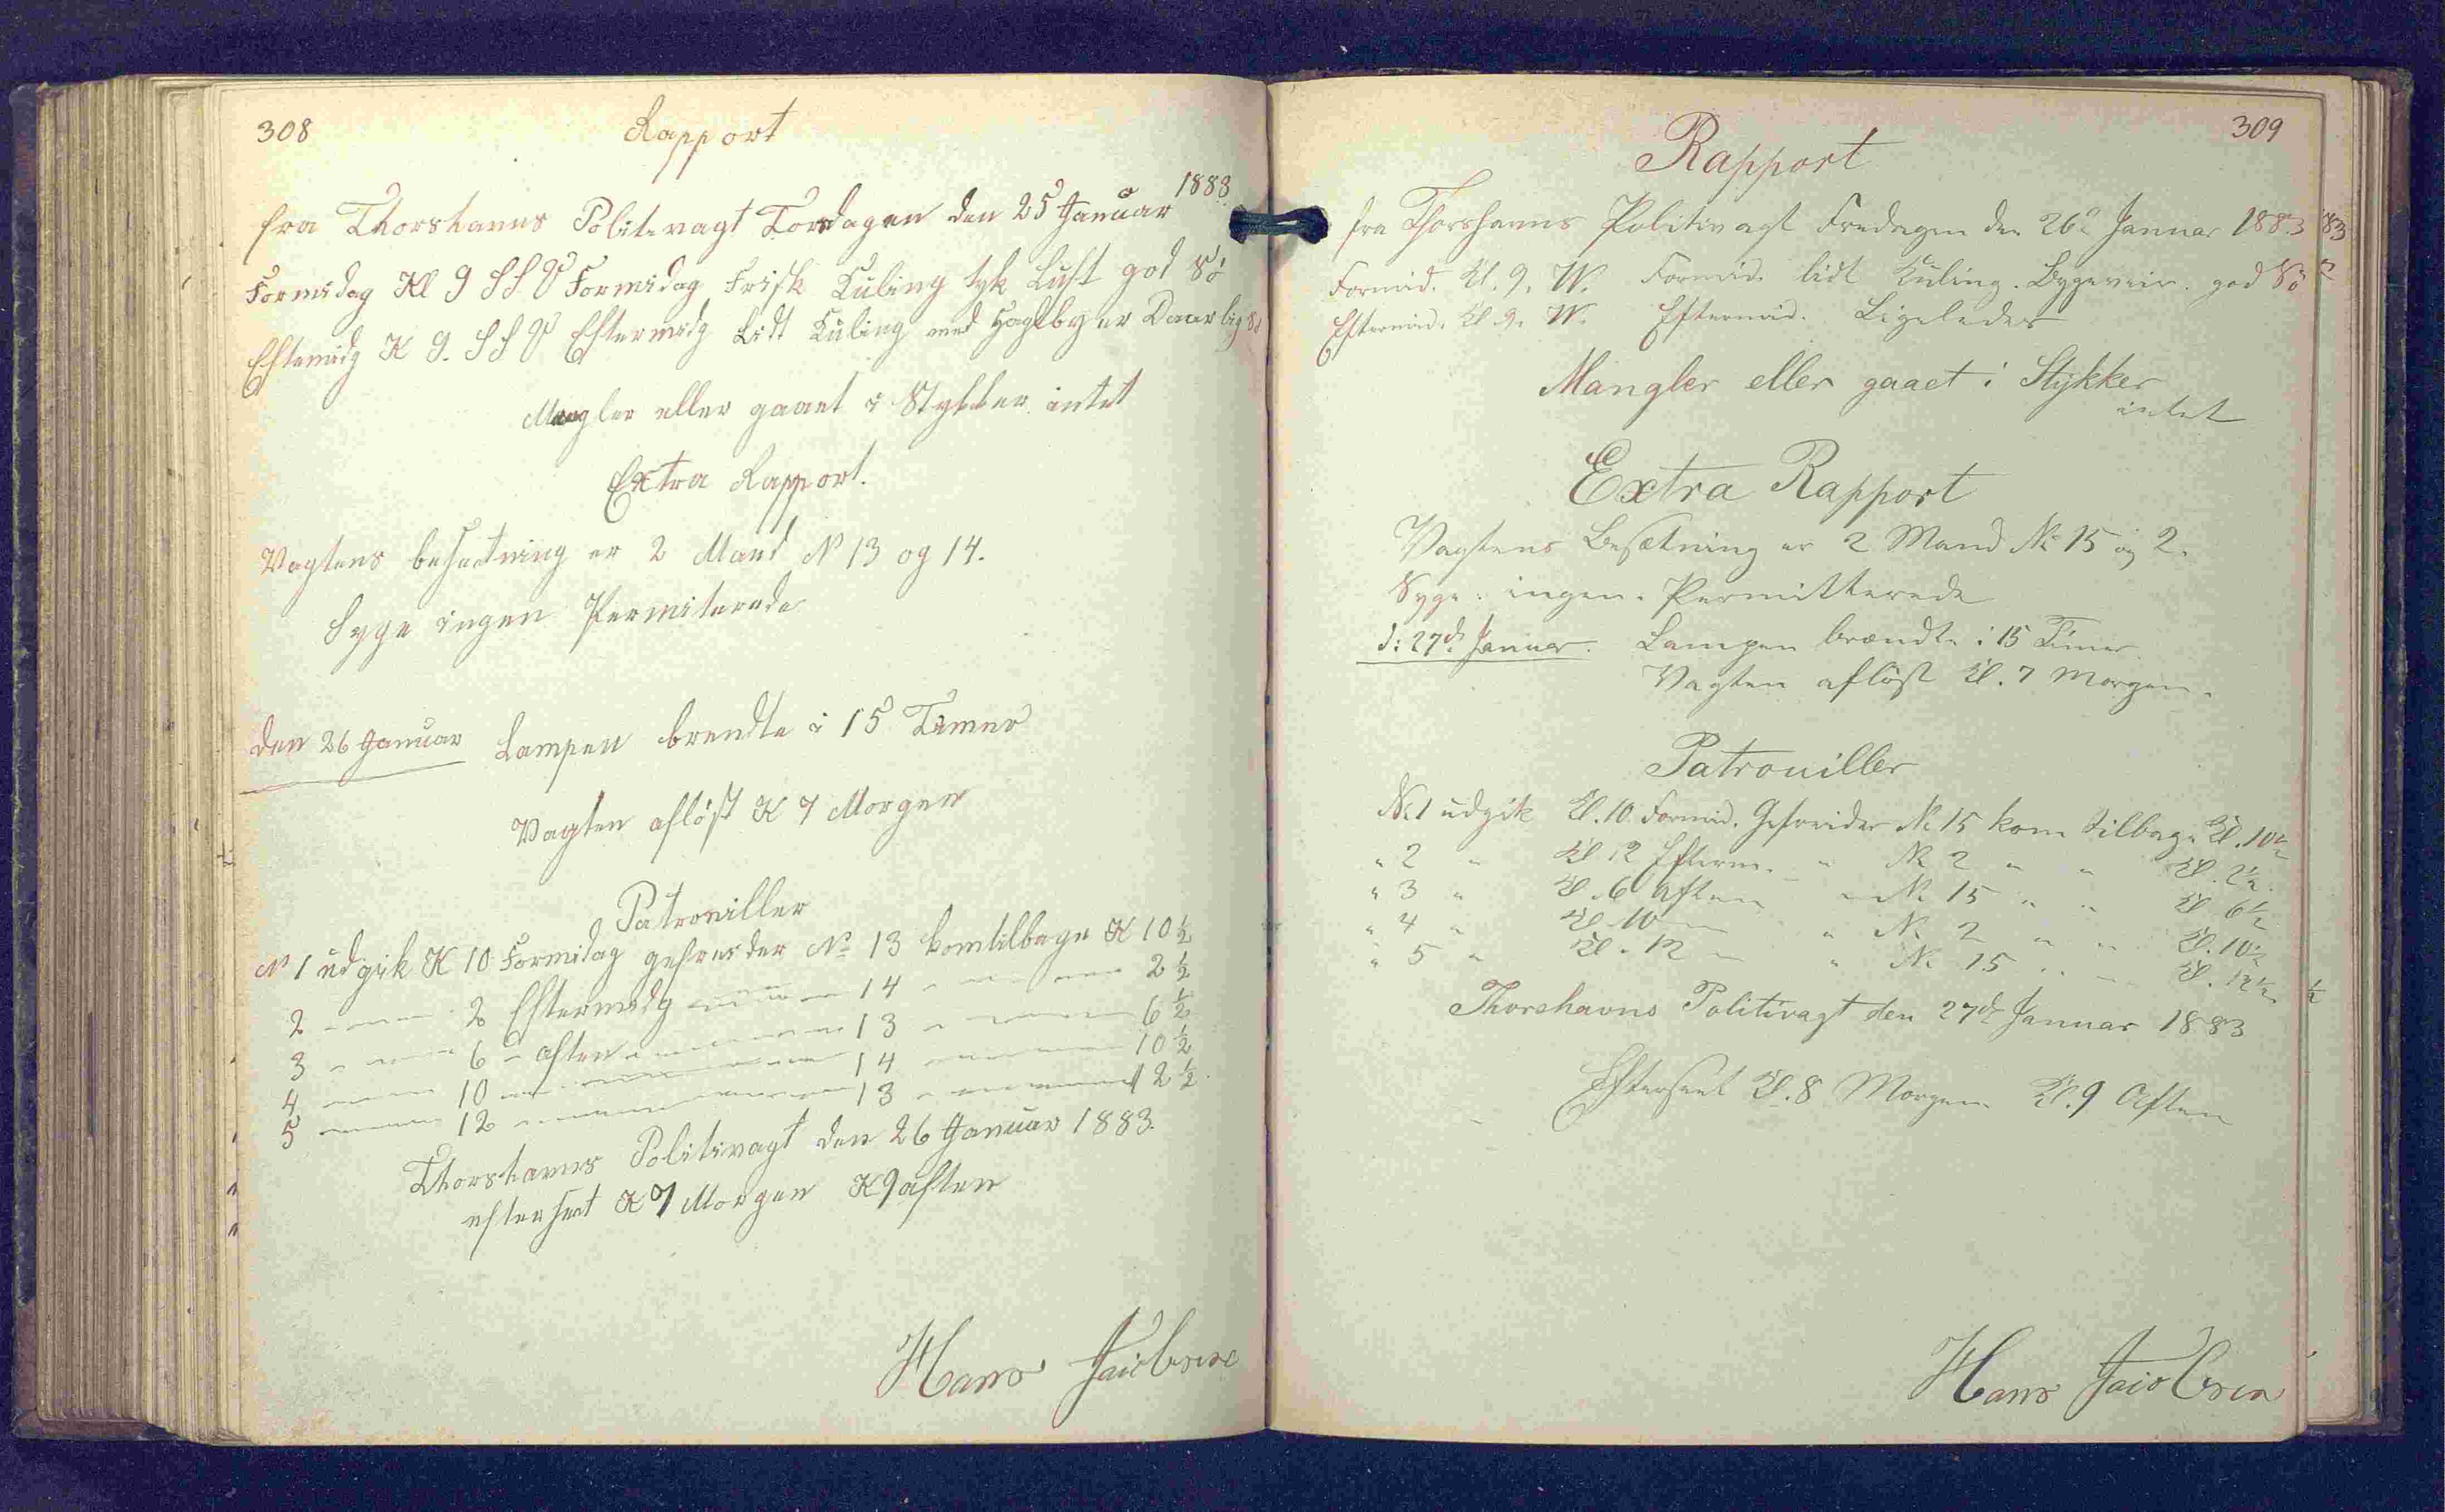 308
Rapport
fra Thorshavns Politivagt Torsdagen den 25 Januar 1883.
Formidag Kl 9 SSV Formidag Frisk Kuling tyk Luft god Sö
Eftemidg K 9. SSV Eftermidg Lidt Kuling med Haglbyer Daarlig Sö
Mangler eller gaaet i Stykker intet
Extra Rapport.
Vagtens besætning er 2 Mand No 13 og 14.
Syge ingen Permiterede
den 26 Januar Lampen brendte i 15 Timer
Vagten aflöst K 7 Morgen
Patrouiller
No 1 udgik K 10 Formidag gefreider No 13 komtilbage K 10 1/2
2 " " 2 Eftermidg " " 14 " " 2 1/2
3 " " 6 " aften " " 13 " " 6 1/2
4 " " 10 " " 14 " " 10 1/2
5 " " 12 " " 13 " " 12 1/2.
Thorshavns Politivagt den 26 Januar 1883.
efterseet K 7 Morgen K 9 aften
Hans Jacobsen
309
Rapport
fra Thorshavns Politivagt Fredagen den 26d Januar 1883
Formid. Kl. 9. W. Formid. lidt Kuling. Bygeveir. god Sö
Eftermid. Kl. 9. W. Eftermid. Ligeledes
Mangler eller gaaet i Stykker
intet
Extra Rapport
Vagtens Besætning er 2 Mand No 15 og 2.
Syge: ingen. Permitterede
d: 27d Januar. Lampen brændte i 15 Timer.
Vagten aflöst Kl. 7 Morgen.
Patrouiller
No 1 udgik Kl. 10 Formid. Gefreider No 15 kom tilbage Kl. 10 1/2
" 2 " Kl 12 Efterm. " No 2 " " Kl. 2 1/2.
" 3 " Kl. 6 Aften " No 15 " " Kl 6 1/2
" 4 " Kl 10 " " No 2 " " Kl. 10 1/2
" 5 " Kl. 12 " " No 15 " " Kl. 12 1/2.
Thorshavns Politivagt den 27d Januar 1883
Efterseet Kl. 8 Morgen Kl. 9 Aften
Hans Jacobsen